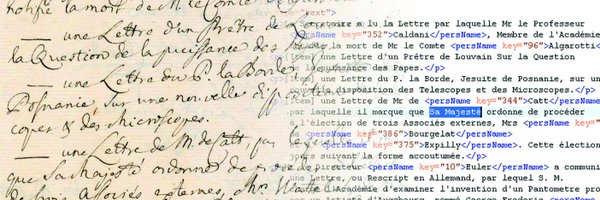 notifié la mort de Mr le Comte
— une Lettre d'un Prêtre de
la Question de la puissance des
— une Lettre du P. la Borde,
Posnanie, sur une nouvelle
copes & des Microscopes.
— une Lettre de Mr de Catt, par
que Sa Majesté ordonne de
trois Associés externes, Mrs
"text">
Secretaire a lu la Lettre par laquelle Mr le Professeur
<persName key="352">Caldani</persName>, Membre de l'Académie
la mort de Mr le Comte <persName key="96">Algarotti<
[Item] une Lettre d'un Prêtre de Louvain Sur la Question
uissance des Papes.</p>
[Item] une Lettre du P. la Borde, Jesuite de Posnanie, sur un
disposition des Telescopes et des Microscopes.</p>
[Item] une Lettre de Mr de <persName key="344">Catt</persName>
par laquelle il marque que Sa Majesté ordonne de procéder
à l'élection de trois Associés externes, Mrs <persName
</persName> <persName
key="386">Bourgelat</persName>
key="375">Expilly</persName>. Cette élection
jours suivant la forme accoutumée.</p>
irecteur <persName key="10">Euler</persName> a communi
une Lettre, ou Rescript en Allemand, par lequel S. M.
l'Académie d'examiner l'invention d'un Pantometre pro